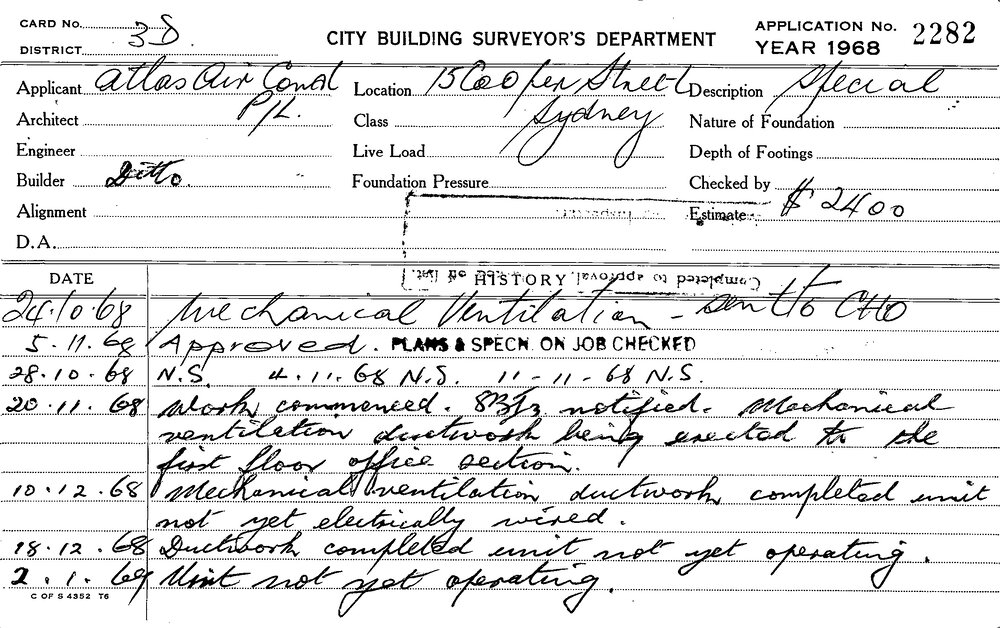 CARD No. 38
DISTRICT
CITY BUILDING SURVEYOR'S DEPARTMENT
APPLICATION No. 2282
YEAR 1968
Applicant Atlas Air Cond P/L.
Location 15 Cooper Street Sydney
Description Special
Architect
Class
Nature of Foundation
Engineer
Live Load
Depth of Footings
Builder Ditto.
Foundation Pressure
Checked by
Alignment
Estimate $ 2400
D.A.
Completed to approval.
DATE HISTORY
24.10.68 Mechanical Ventilation - Sent to CHO
5.11.68 Approved. PLANS & SPECN. ON JOB CHECKED
28.10.68 N.S. 4.11.68 N.S. 11-11-68 N.S.
20.11.68 Work commenced. notified. Mechanical
ventilation ductwork being erected to the
first floor office section.
10.12.68 Mechanical ventilation ductwork completed unit
not yet electrically wired.
18.12.68 Ductwork completed unit not yet operating.
2.1.69 Unit not yet operating.
C OF S 4352 T6